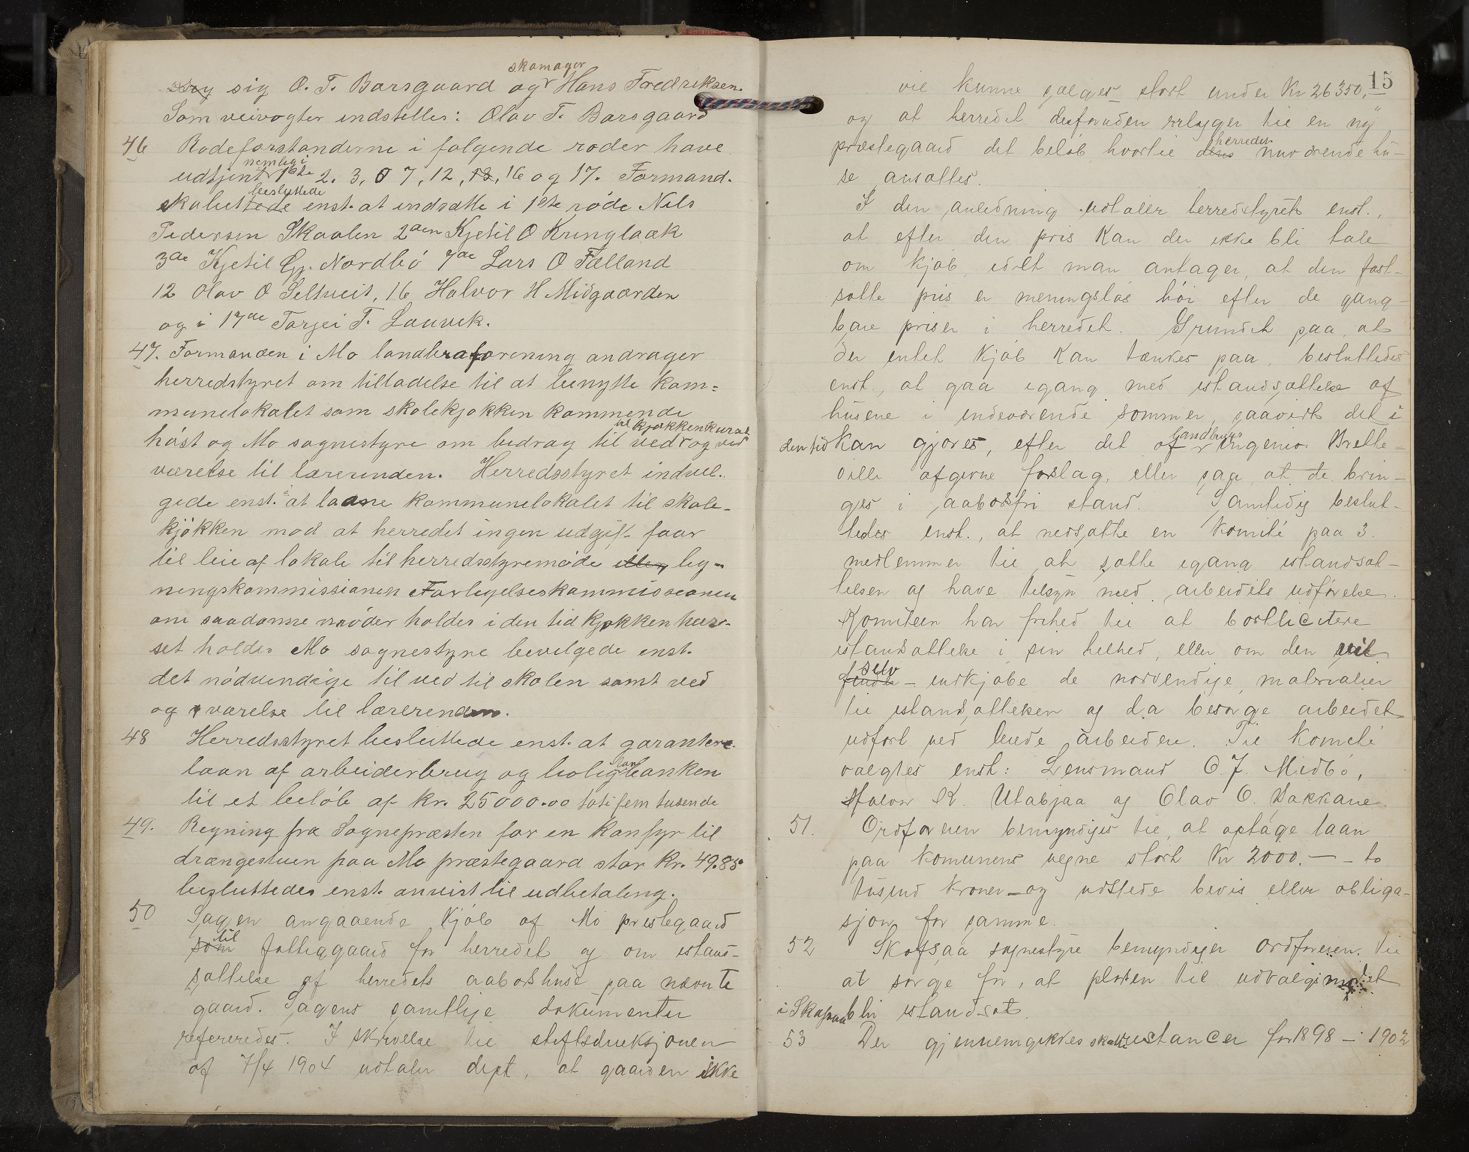 skomager
sig O. T. Borsgaard og Hans Fredriksen.
Som veivogter indstilles: Olav T. Borsgaard
46 Rodeforstanderne i følgende roder have
nemlig i
udtjent 1ste 2. 3, 7, 12, 13, 16 og 17. Formand-
besluttede
skabet enst. at indsætte i 1ste rode Nels
Pedersen Skaalen 2den Kjetil O Kringlaak
3de Kjetil G. Nordbö 7de Lars O Fælland
12 Olav O Seltveit, 16 Halvor H Midgaarden
og i 17de Torjei T. Lauvik.
47. Formanden i Mo landbruforening andrager
herredstyret om tilladelse til at benytte kom-
munelokalet som skolekjøkken kommende
til kjøkkenkurset
høst og Mo sognestyre om bedrag til ved og ved
værelse til lærerinden. Herredsstyret indvil-
gede enst. i at laane kommunelokalet til skole-
kjökken mod at herredet ingen udgift faar
til leie af lokale til herredsstyremøde eller lig-
ningskommissionen Forligelseskommissionen
om saadanne møder holdes i den tid kjøkkenkur-
set holdes Mo sognestyre bevilgede enst.
det nödvendige til ved til skolen samt ved
og værelse til lærerinden.
48 Herredsstyret besluttede enst. at garantere
laan af arbeiderbrug og boligbanken
til et beløb af kr. 25000.00 totifemtusende
49. Regning fra Sognepræsten for en komfyr til
drængestuen paa Mo præstegaard stor kr. 49.85
besluttedes enst. anvist til udbetaling.
50 Sagen angaaende kjöb af Mo prestegaard
til
som fattiggaard for herredet og om istand-
sættelse af herredets aabodshuse paa nævnte
gaard. Sagens samtlige dokumenter
refereredes. I skrivelse til stiftsdireksjonen
af 7/4 1904 udtaler dept, at gaarden ikke
15
vil kunne sælges stort under Kr 26350,-
og at herredet desforuden svarer til en ny
herredets
præstegaard det beløb hvortil dens nuværende hu-
se ansættes.
I den anledning udtaler herredstyret enst.,
at efter den pris kan der ikke bli tale
om kjöb, idet man antager, at den fast-
satte pris er meningsløs høi efter de gang-
bare priser i herredet. Grundet paa at
der intet kjöb kan tænkes paa, besluttedes
enst., at gaa igang med istandsættelse af
husene i indeværende sommer, saavidt det i
landbrugs
den tid kan gjøres, efter det af ingeniør Brette-
ville afgivne forslag, eller saa, at de brin-
ges i aabodsfri stand. Samtidig beslut-
tedes enst., at nedsætte en Komité paa 3
medlemmer til at sætte igang istandsæt-
telsen og have tilsyn med arbeidets udførelse.
Komiteen har frihed til at bortlicitere
istandsættelse i sin helhed, eller om den vil
selv
indkjøbe de nødvendige materialier
til istandsættelsen og da besørge arbeidet
udført ved leiede arbeidere. Til komité
valgtes enst: Lensmand O. J. Midbö,
Halvor K. Utabjaa og Olav O. Vakkane
51. Ordføreren bemyndiges til, at optage laan
paa komunens vegne stort Kr 2000.— - to
tusind kroner - og udstede bevis eller obliga-
sjon for samme.
52 Skafsaa sognestyre bemyndiger ordføreren til
at sørge for, at pladsen til
i Skafsaa bli istandsat.
53 Der gjennemgikkes skatterestancer for 1898 - 1902